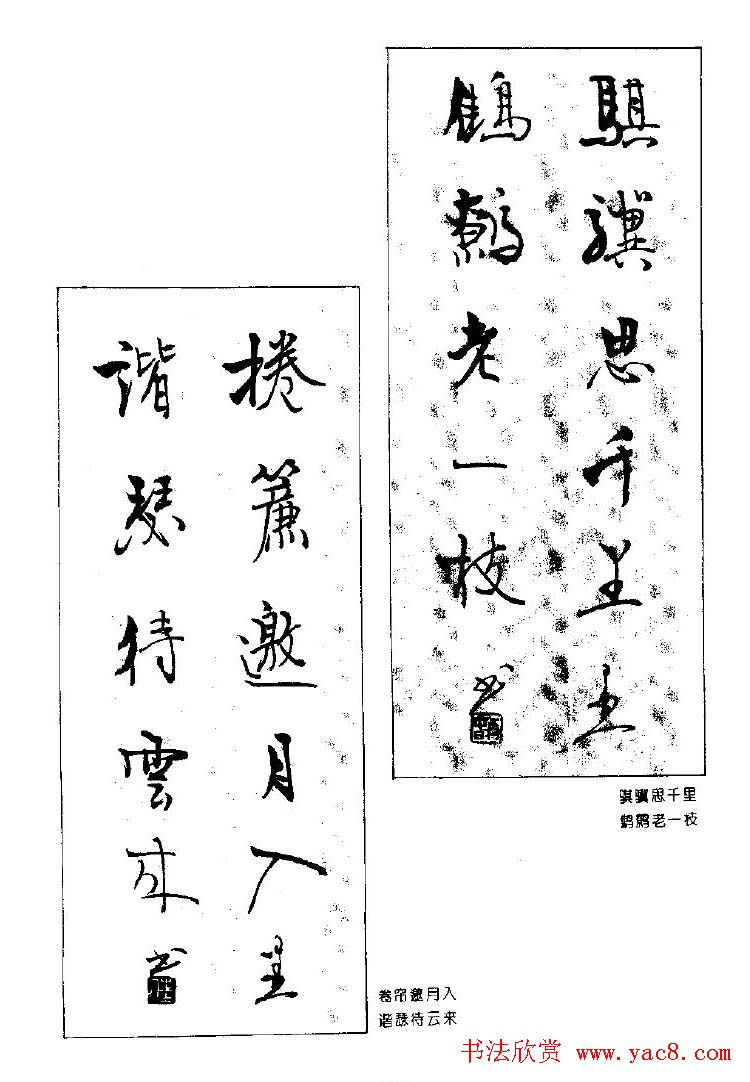 騏驥思千里
鷦鷯老一枝书
骐骥思千里
鹪鹩老一枝
捲簾邀月入
諧瑟待雲来书
卷帘邀月入
谐瑟待云来
书法欣赏 www.yac8.com